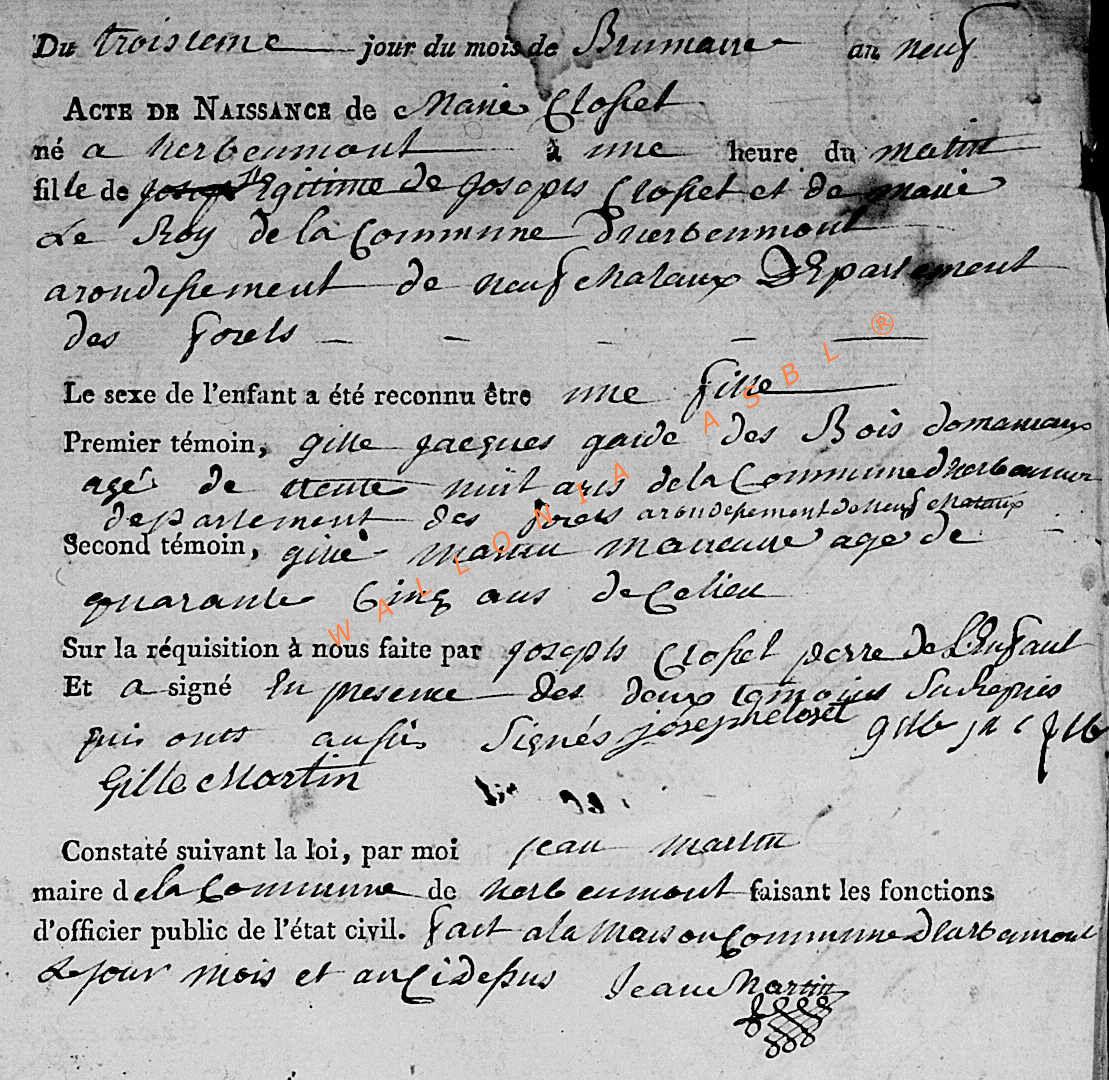 Du troisieme jour du mois de Brumaire an neuf
ACTE DE NAISSANCE de Marie Closset
né a herbeumont à une heure du matin
fille de Joseph l'Egitime de Joseph Closset et de marie
Le Roy de la Commune d'herbeumont
arondissement de neufchataux DEpartement
des forets
Le sexe de l'enfant a été reconnu être une fille
Premier témoin, gille Jacques garde des Bois domaniaux
agé de trente huit ans de la Commune d'herbeumont
departement des forets arondissement de neufchataux
Second témoin, gille martin agé de
quarante Cinq ans de Ce lieu
Sur la réquisition à nous faite par Joseph Closset perre de L'Enfant
Et a signé En presence des deux temoins
qui ont aussi Signés joseph closet gille
Gille Martin
Constaté suivant la loi, par moi jean martin
maire de la Commune de herbeumont faisant les fonctions
d'officier public de l'état civil. fait a la Maison Commune d'herbeumont
Le jour mois et an Cidessus Jean Martin
WALLONIA ASBL ®